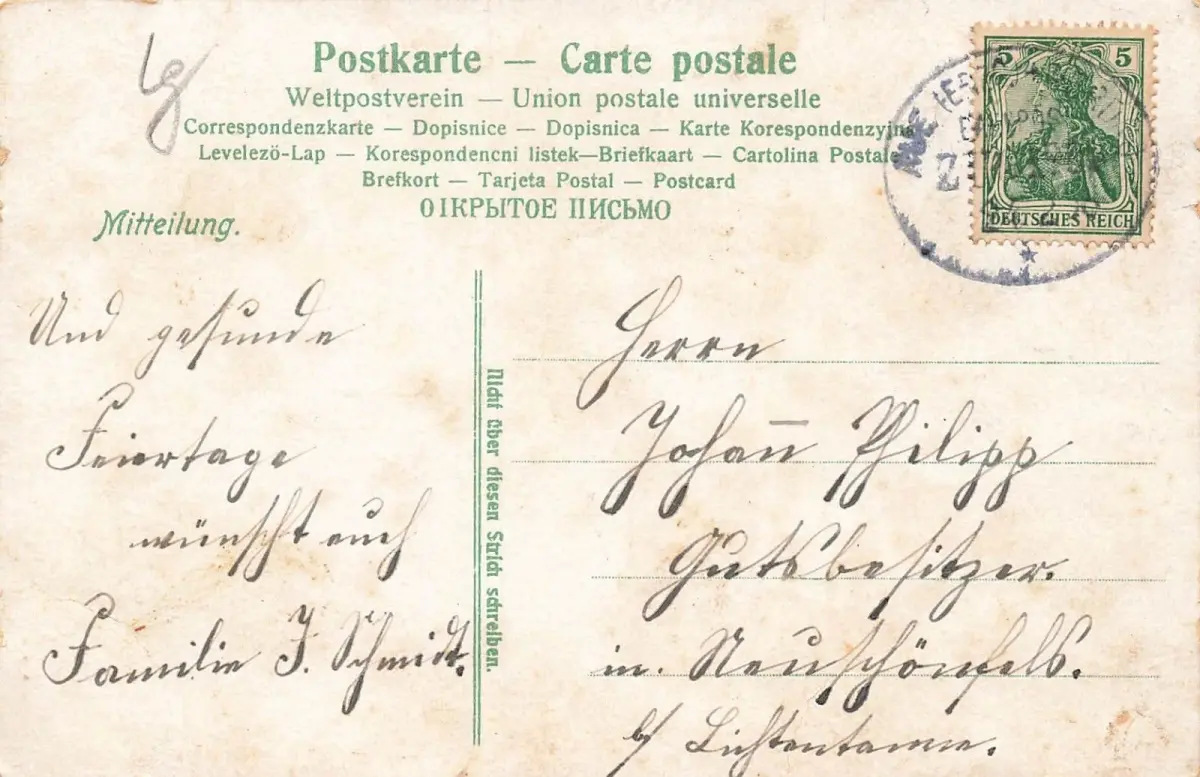 Postkarte — Carte postale
Weltpostverein — Union postale universelle
Correspondenzkarte — Dopisnice — Dopisnica — Karte Korespondenzyjna
Levelezö-Lap — Korespondencni listek—Briefkaart — Cartolina Postale
Brefkort — Tarjeta Postal — Postcard
ОІКРЫТОЕ ПИСЬМО
Mitteilung.
5 5
DEUTSCHES REICH
Und gesunde
Feiertage
wünscht euch
Familie J. Schmidt.
Nicht über diesen Strich schreiben.
Herrn
Johan̅n̅ Philipp
Gutsbesitzer.
in. Neuschönfels.
b/ Lichtentanne.